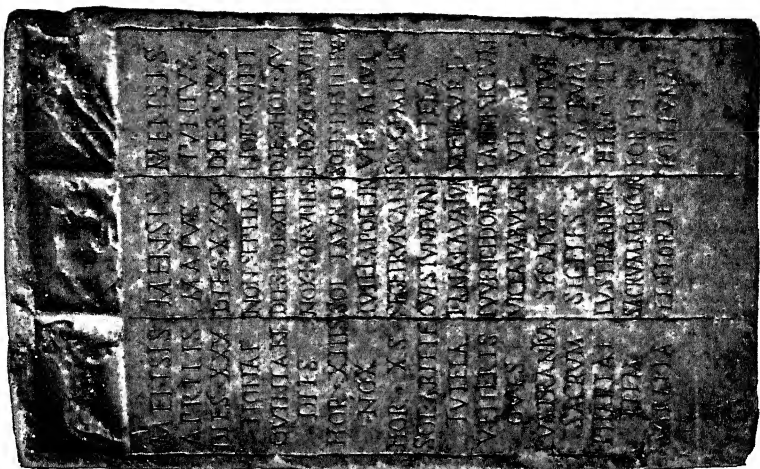 MENSIS
APRILIS
DIES·XXX
NONAE
DIES
HOR·XIIIS
NOX
HOR·XS
SOL ARIETE
TVTELA
VENERIS
OVES
LVSTRANTVR
SACRVM
ITEM
SARAPIA
MENSIS
MAIVS
DIES·XXXI
NON SEPTIM
DIES HOR XIIIIS
NOX HOR VIIIIS
SOL TAVRO
TVTEL APOLLIN
SEGET RVNCANT
OVES TONDENT
LANA LAVATVR
IVVENCI DOMANT
VICEA PABVLAR
SECATVR
SEGETES
LVSTRANTVR
SACRVM MERCVR
FLORAE
MENSIS
IVNIVS
DIES·XXX
NON QVINT
DIES HOR XV
NOX HOR VIIII
SOL GEMINIS
TVTELA
MERCVRI
FAENISICIVM
VINEAE
OCCANTVR
SACRVM
HERCVLI
FORTIS
FORTVNAE